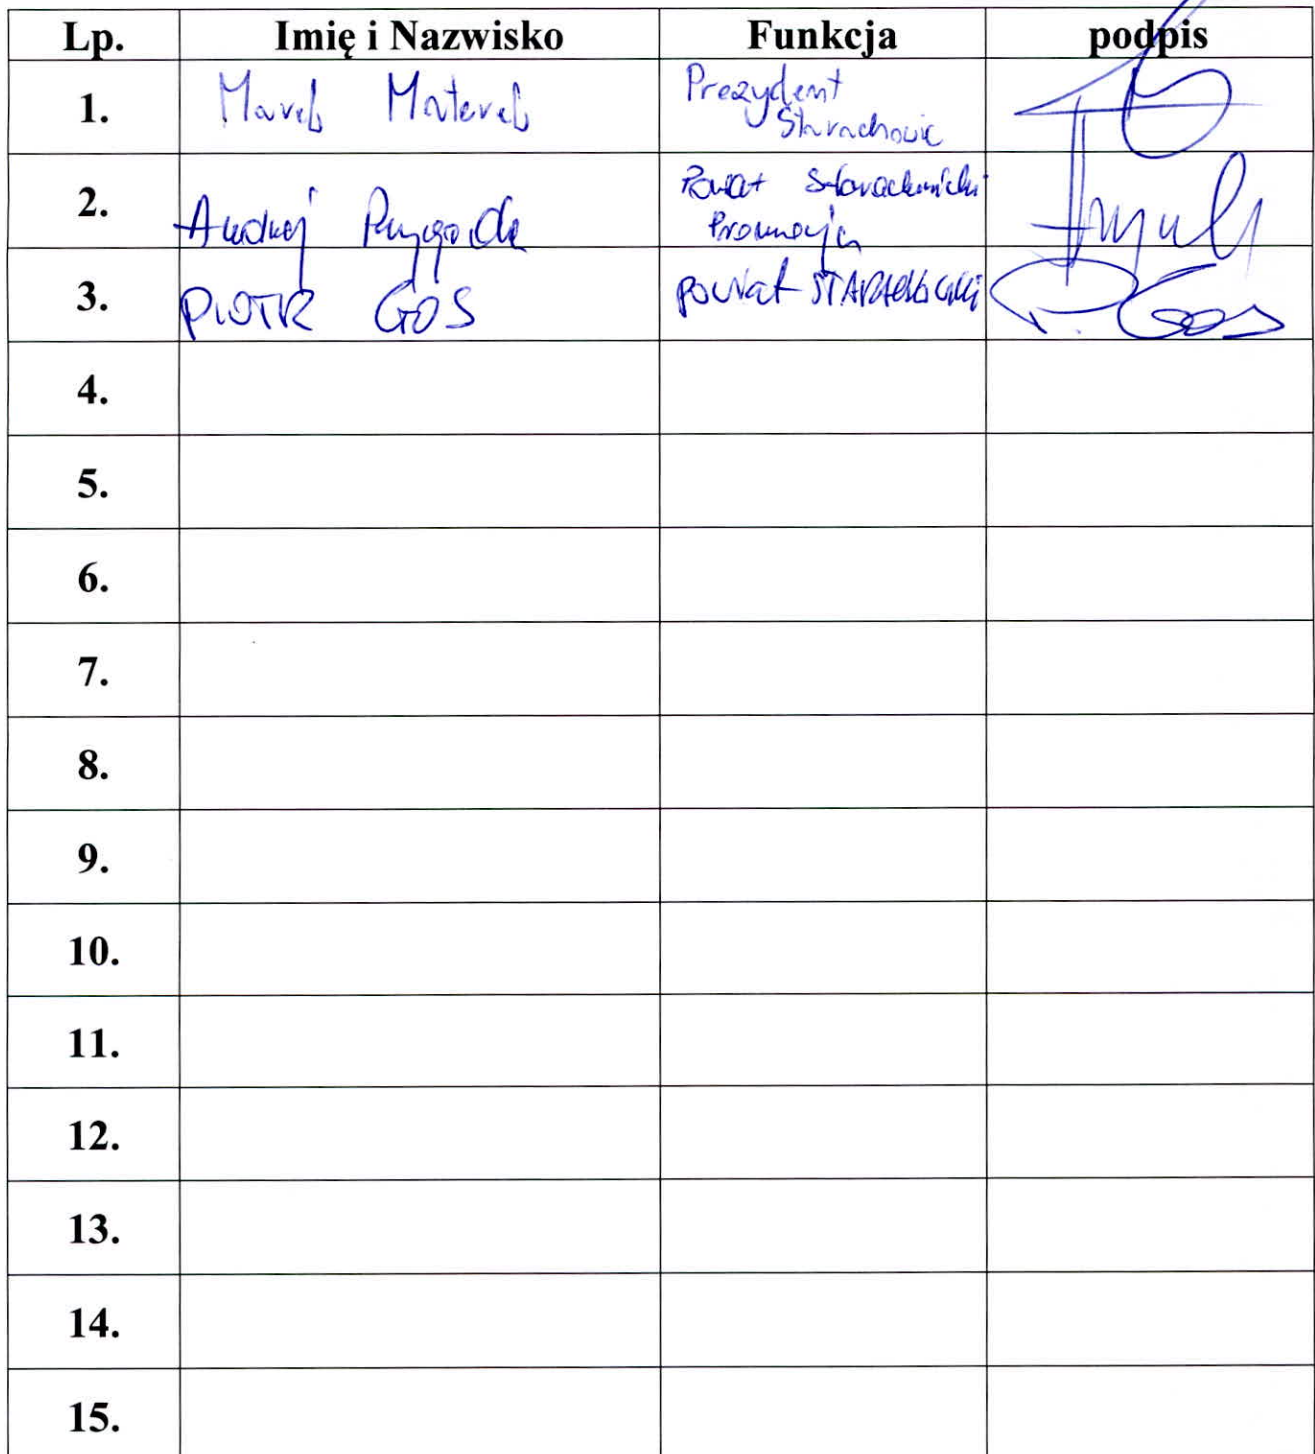 Lp. Imię i Nazwisko Funkcja podpis
1. Marek Materek Prezydent
Starachowic
2. Andrzej Przygoda Powiat Starachowicki
Promocja
3. PIOTR GOS powiat STARACHOWICKI P. Gos
4.
5.
6.
7.
8.
9.
10.
11.
12.
13.
14.
15.